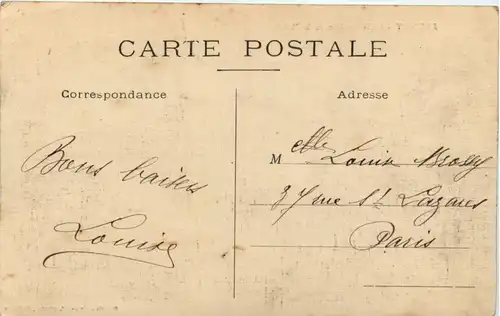 CARTE POSTALE
Correspondance
Adresse
Bons baisers
Louise
Melle Louise
37 rue St Lazare
Paris